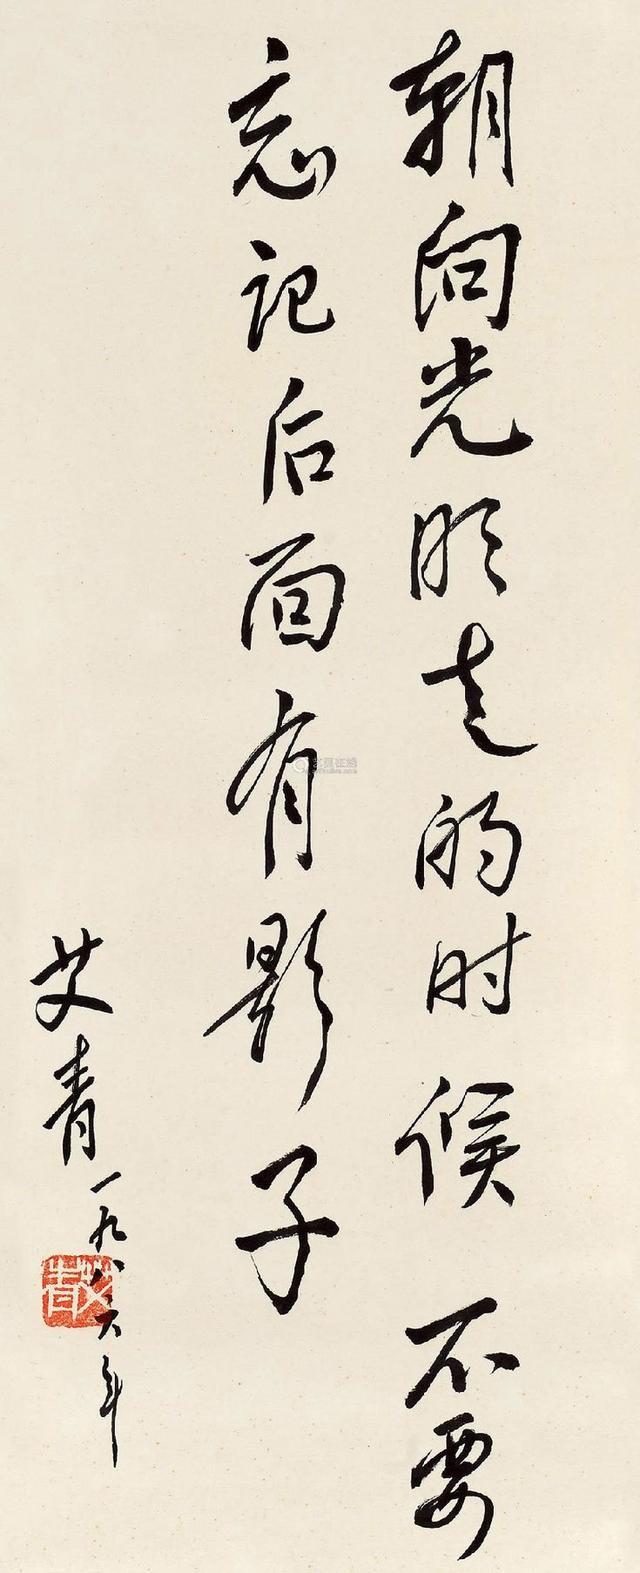 朝向光明走的时候 不要
忘记后面有影子
艾青 一九八六年
艾青